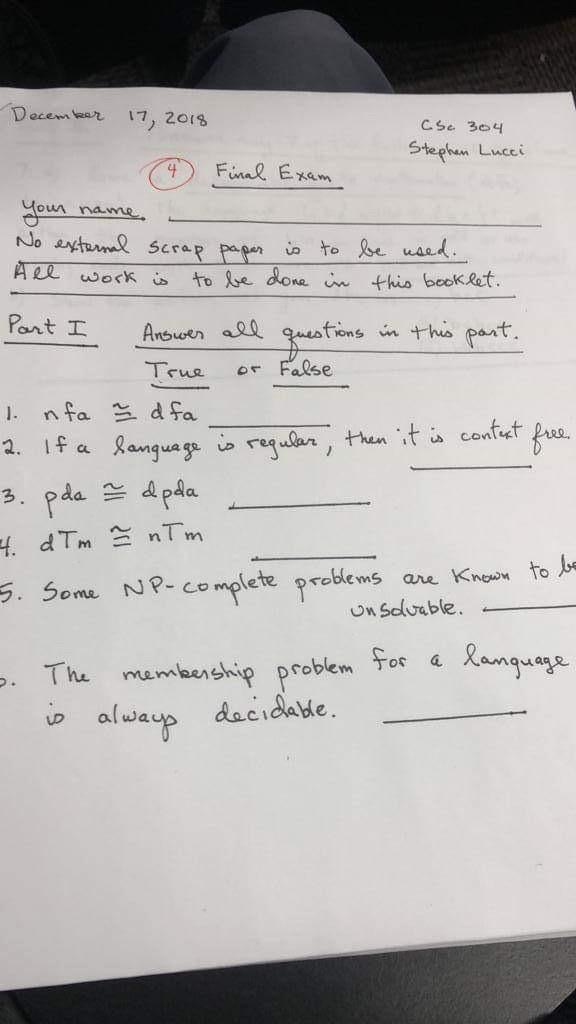 December 17, 2018
CSc 304
Stephen Lucci
4 Final Exam
Your name
No external scrap paper is to be used.
All work is to be done in this booklet.
Part I Answer all questions in this part.
True or False
1. nfa ≅ dfa
2. If a language is regular, then it is context free.
3. pda ≅ dpda
4. dTm ≅ nTm
5. Some NP-complete problems are known to be
unsolvable.
The membership problem for a language
is always decidable.